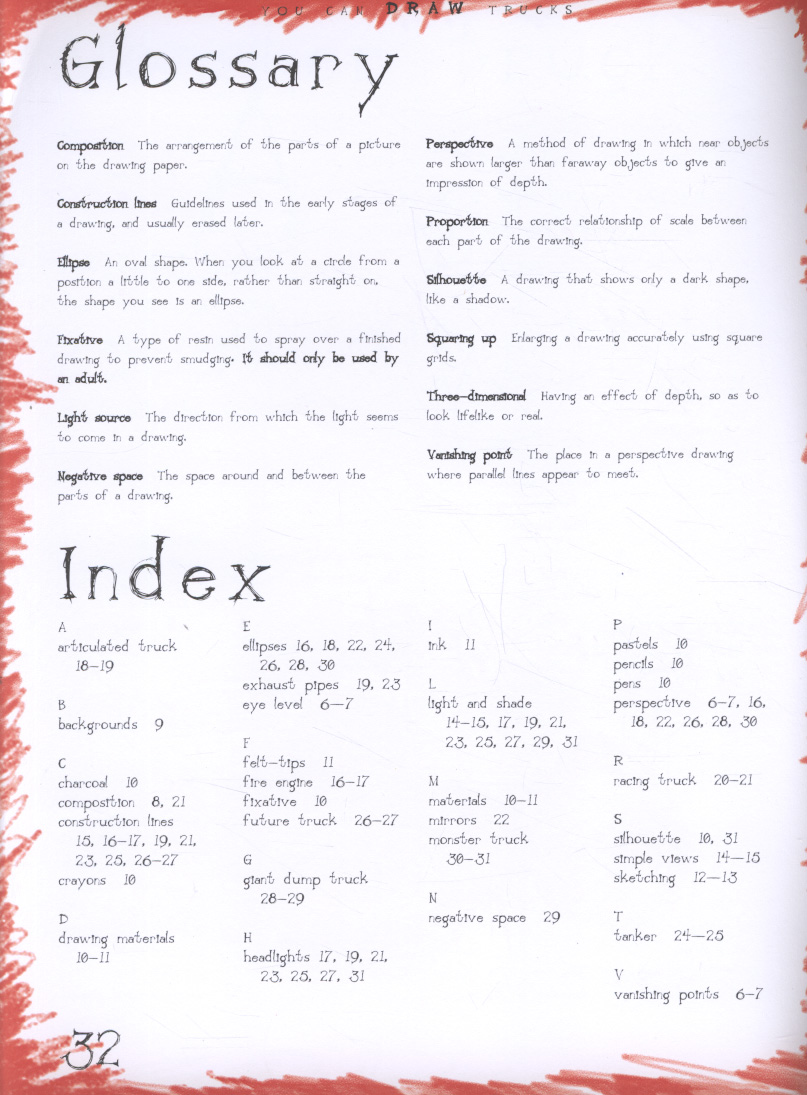 YOU CAN DRAW TRUCKS
Glossary
Composition The arrangement of the parts of a picture
on the drawing paper.
Construction lines Guidelines used in the early stages of
a drawing, and usually erased later.
Ellipse An oval shape. When you look at a circle from a
position a little to one side, rather than straight on,
the shape you see is an ellipse.
Fixative A type of resin used to spray over a finished
drawing to prevent smudging. It should only be used by
an adult.
Light source The direction from which the light seems
to come in a drawing.
Negative space The space around and between the
parts of a drawing.
Perspective A method of drawing in which near objects
are shown larger than faraway objects to give an
impression of depth.
Proportion The correct relationship of scale between
each part of the drawing.
Silhouette A drawing that shows only a dark shape,
like a shadow.
Squaring up Enlarging a drawing accurately using square
grids.
Three-dimensional Having an effect of depth, so as to
look lifelike or real.
Vanishing point The place in a perspective drawing
where parallel lines appear to meet.
Index
A
articulated truck
18-19
B
backgrounds 9
C
charcoal 10
composition 8, 21
construction lines
15, 16-17, 19, 21,
23, 25, 26-27
crayons 10
D
drawing materials
10-11
E
ellipses 16, 18, 22, 24,
26, 28, 30
exhaust pipes 19, 23
eye level 6-7
F
felt-tips 11
fire engine 16-17
fixative 10
future truck 26-27
G
giant dump truck
28-29
H
headlights 17, 19, 21,
23, 25, 27, 31
I
ink 11
L
light and shade
14-15, 17, 19, 21,
23, 25, 27, 29, 31
M
materials 10-11
mirrors 22
monster truck
30-31
N
negative space 29
P
pastels 10
pencils 10
pens 10
perspective 6-7, 16,
18, 22, 26, 28, 30
R
racing truck 20-21
S
silhouette 10, 31
simple views 14-15
sketching 12-13
T
tanker 24-25
V
vanishing points 6-7
32